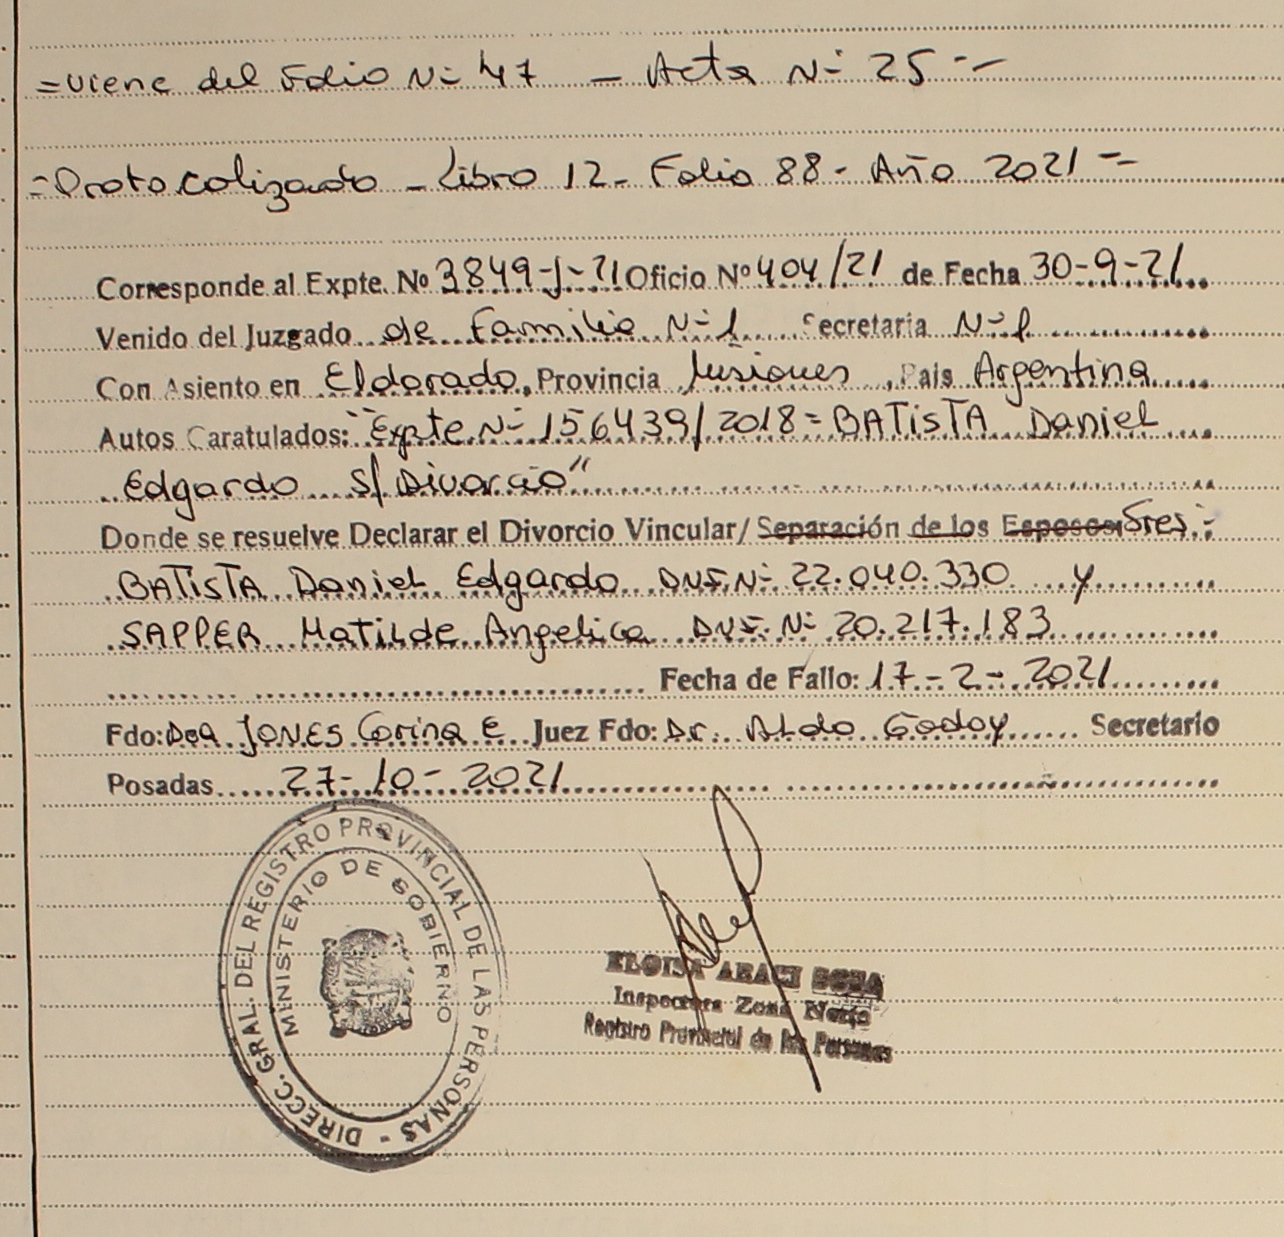 =Viene del Folio Nº 47 - Acta Nº 25 --
=Protocolizado - Libro 12 - Folio 88 - Año 2021 --
Corresponde al Expte. Nº 3849-J-21 Oficio Nº 404/21 de Fecha 30-9-21
Venido del Juzgado de Familia Nº 1 Secretaria Nº 1
Con Asiento en Eldorado, Provincia Misiones, Pais Argentina
Autos Caratulados: "Expte Nº 156439/2018 = BATISTA Daniel
Edgardo S/ Divorcio"
Donde se resuelve Declarar el Divorcio Vincular/ Separación de los Esposos Sres:-
BATISTA Daniel Edgardo DNI. Nº 22.040.330 y
SAPPER Matilde Angelica DNI. Nº 20.217.183
Fecha de Fallo: 17-2-2021
Fdo: Dra JONES Corina E Juez Fdo: Dr. Aldo Godoy Secretario
Posadas 27-10-2021
DIRECC. GRAL. DEL REGISTRO PROVINCIAL DE LAS PERSONAS -
MINISTERIO DE GOBIERNO
ELOISA ARACI SOSA
Inspectora Zona Norte
Registro Provincial de las Personas